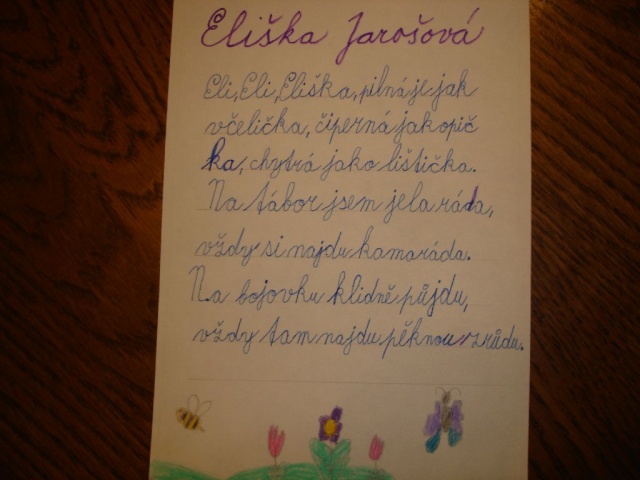 Eliška Jarošová
Eli, Eli, Eliška, pilná je jak
včelička, čiperná jak opič
ka, chytrá jako lištička.
Na tábor jsem jela ráda,
vždy si najdu kamaráda.
Na bojovku klidně půjdu,
vždy tam najdu pěknou zrůdu.